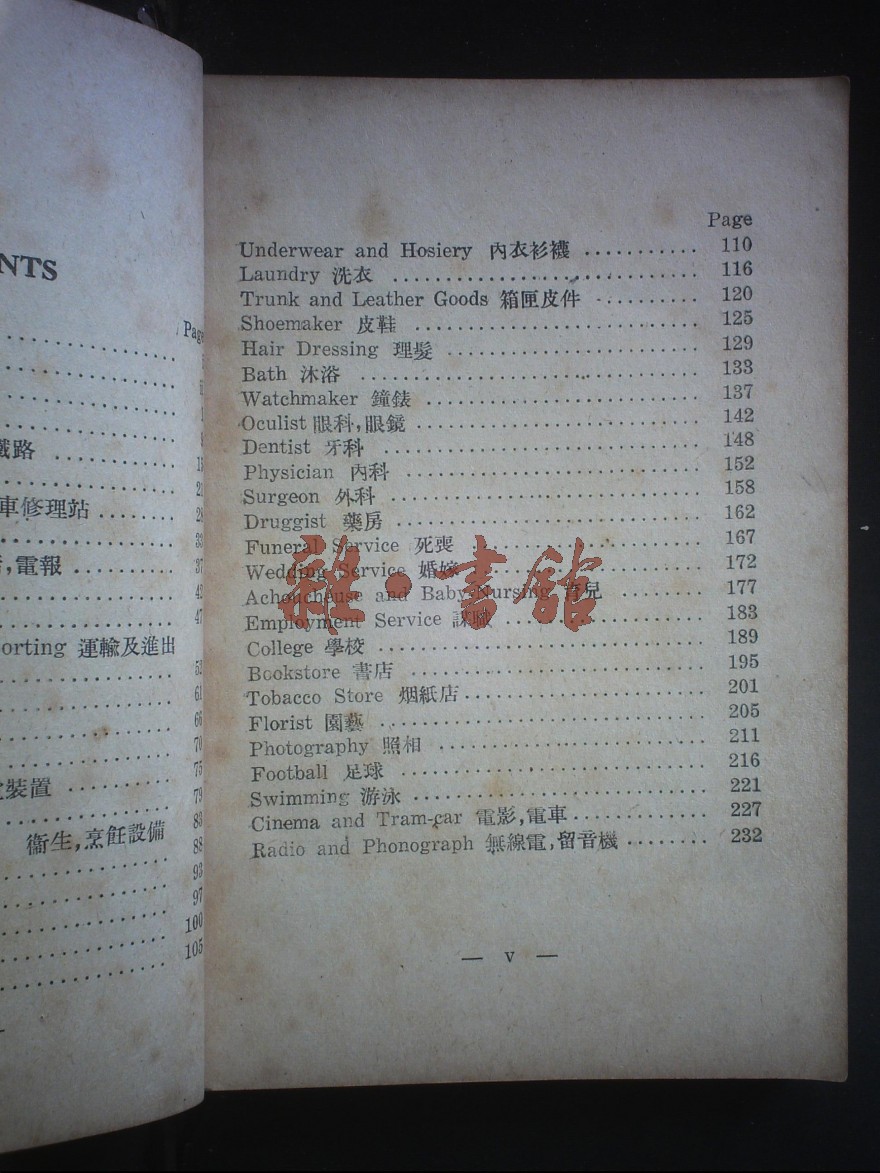 NTS
Page
鐵路
13
21
車修理站 ........ 28
33
,電報 .......... 37
42
47
orting 運輸及進出
53
61
66
70
75
裝置 .......... 79
83
衞生,烹飪設備 88
93
97
100
105
Page
Underwear and Hosiery 內衣衫襪 ........... 110
Laundry 洗衣 ............................ 116
Trunk and Leather Goods 箱匣皮件 .......... 120
Shoemaker 皮鞋 .......................... 125
Hair Dressing 理髮 ....................... 129
Bath 沐浴 ............................... 133
Watchmaker 鐘錶 ......................... 137
Oculist 眼科,眼鏡 ........................ 142
Dentist 牙科 ............................. 148
Physician 內科 ........................... 152
Surgeon 外科 ............................ 158
Druggist 藥房 ............................ 162
Funeral Service 死喪 ...................... 167
Wedding Service 婚嫁 ..................... 172
Achoucheuse and Baby Nursing 育兒 ....... 177
Employment Service 謀職 .................. 183
College 學校 ............................. 189
Bookstore 書店 ........................... 195
Tobacco Store 烟紙店 ...................... 201
Florist 園藝 .............................. 205
Photography 照相 ......................... 211
Football 足球 ............................ 216
Swimming 游泳 .......................... 221
Cinema and Tram-car 電影,電車 ............. 227
Radio and Phonograph 無線電,留音機 ........ 232
雜·書館
— v —